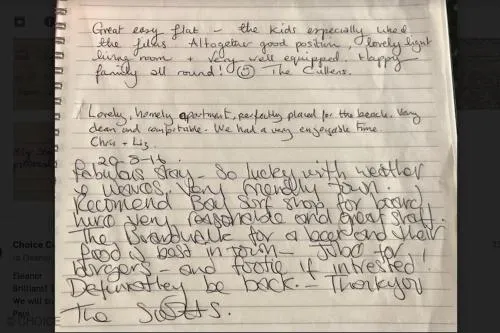 Great easy flat - the kids especially liked
the films. Altogether good position, lovely light
living room + very well equipped. Happy
family all round! The Cullens.
Lovely, homely apartment, perfectly placed for the beach. Very
clean and comfortable. We had a very enjoyable time.
Chris + Liz
29-8-16.
Fabulous stay - So lucky with weather
& waves. Very friendly town.
Recomend Bay Surf shop for board
hire very reasonable and great staff.
The Boardwalk for a beer and their
food is best in town - Jubo for
burgers - and footie if intrested!
Definatley be back. - Thankyou
The Scotts.
Choice C
Eleanor
Brilliant!
We will
© CHOICE